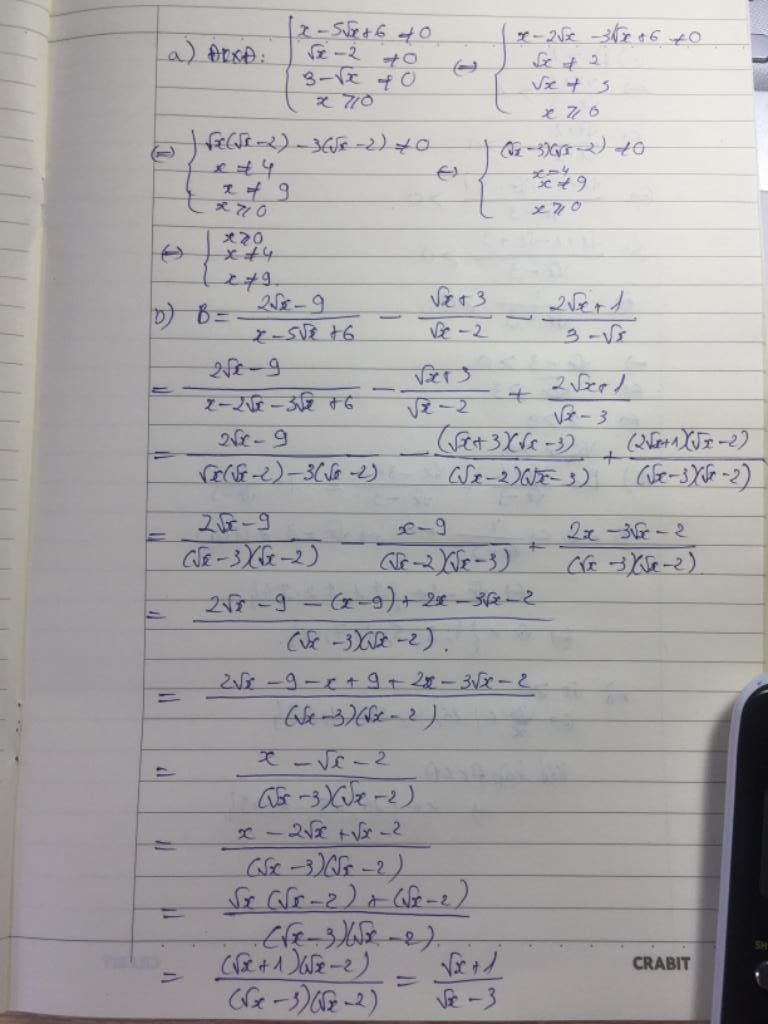 a) ĐKXĐ: { x - 5√x + 6 ≠ 0 ; √x - 2 ≠ 0 ; 3 - √x ≠ 0 ; x ⩾ 0 ⇔ { x - 2√x - 3√x + 6 ≠ 0 ; √x ≠ 2 ; √x ≠ 3 ; x ⩾ 0
⇔ { √x(√x - 2) - 3(√x - 2) ≠ 0 ; x ≠ 4 ; x ≠ 9 ; x ⩾ 0 ⇔ { (√x - 3)(√x - 2) ≠ 0 ; x = 4 ; x ≠ 9 ; x ⩾ 0
⇔ { x ⩾ 0 ; x ≠ 4 ; x ≠ 9.
b) B = (2√x - 9)/(x - 5√x + 6) - (√x + 3)/(√x - 2) - (2√x + 1)/(3 - √x)
= (2√x - 9)/(x - 2√x - 3√x + 6) - (√x + 3)/(√x - 2) + (2√x + 1)/(√x - 3)
= (2√x - 9)/(√x(√x - 2) - 3(√x - 2)) - ((√x + 3)(√x - 3))/((√x - 2)(√x - 3)) + ((2√x + 1)(√x - 2))/((√x - 3)(√x - 2))
= (2√x - 9)/((√x - 3)(√x - 2)) - (x - 9)/((√x - 2)(√x - 3)) + (2x - 3√x - 2)/((√x - 3)(√x - 2))
= (2√x - 9 - (x - 9) + 2x - 3√x - 2)/((√x - 3)(√x - 2)).
= (2√x - 9 - x + 9 + 2x - 3√x - 2)/((√x - 3)(√x - 2))
= (x - √x - 2)/((√x - 3)(√x - 2))
= (x - 2√x + √x - 2)/((√x - 3)(√x - 2))
= (√x(√x - 2) + (√x - 2))/((√x - 3)(√x - 2))
= ((√x + 1)(√x - 2))/((√x - 3)(√x - 2)) = (√x + 1)/(√x - 3)
CRABIT